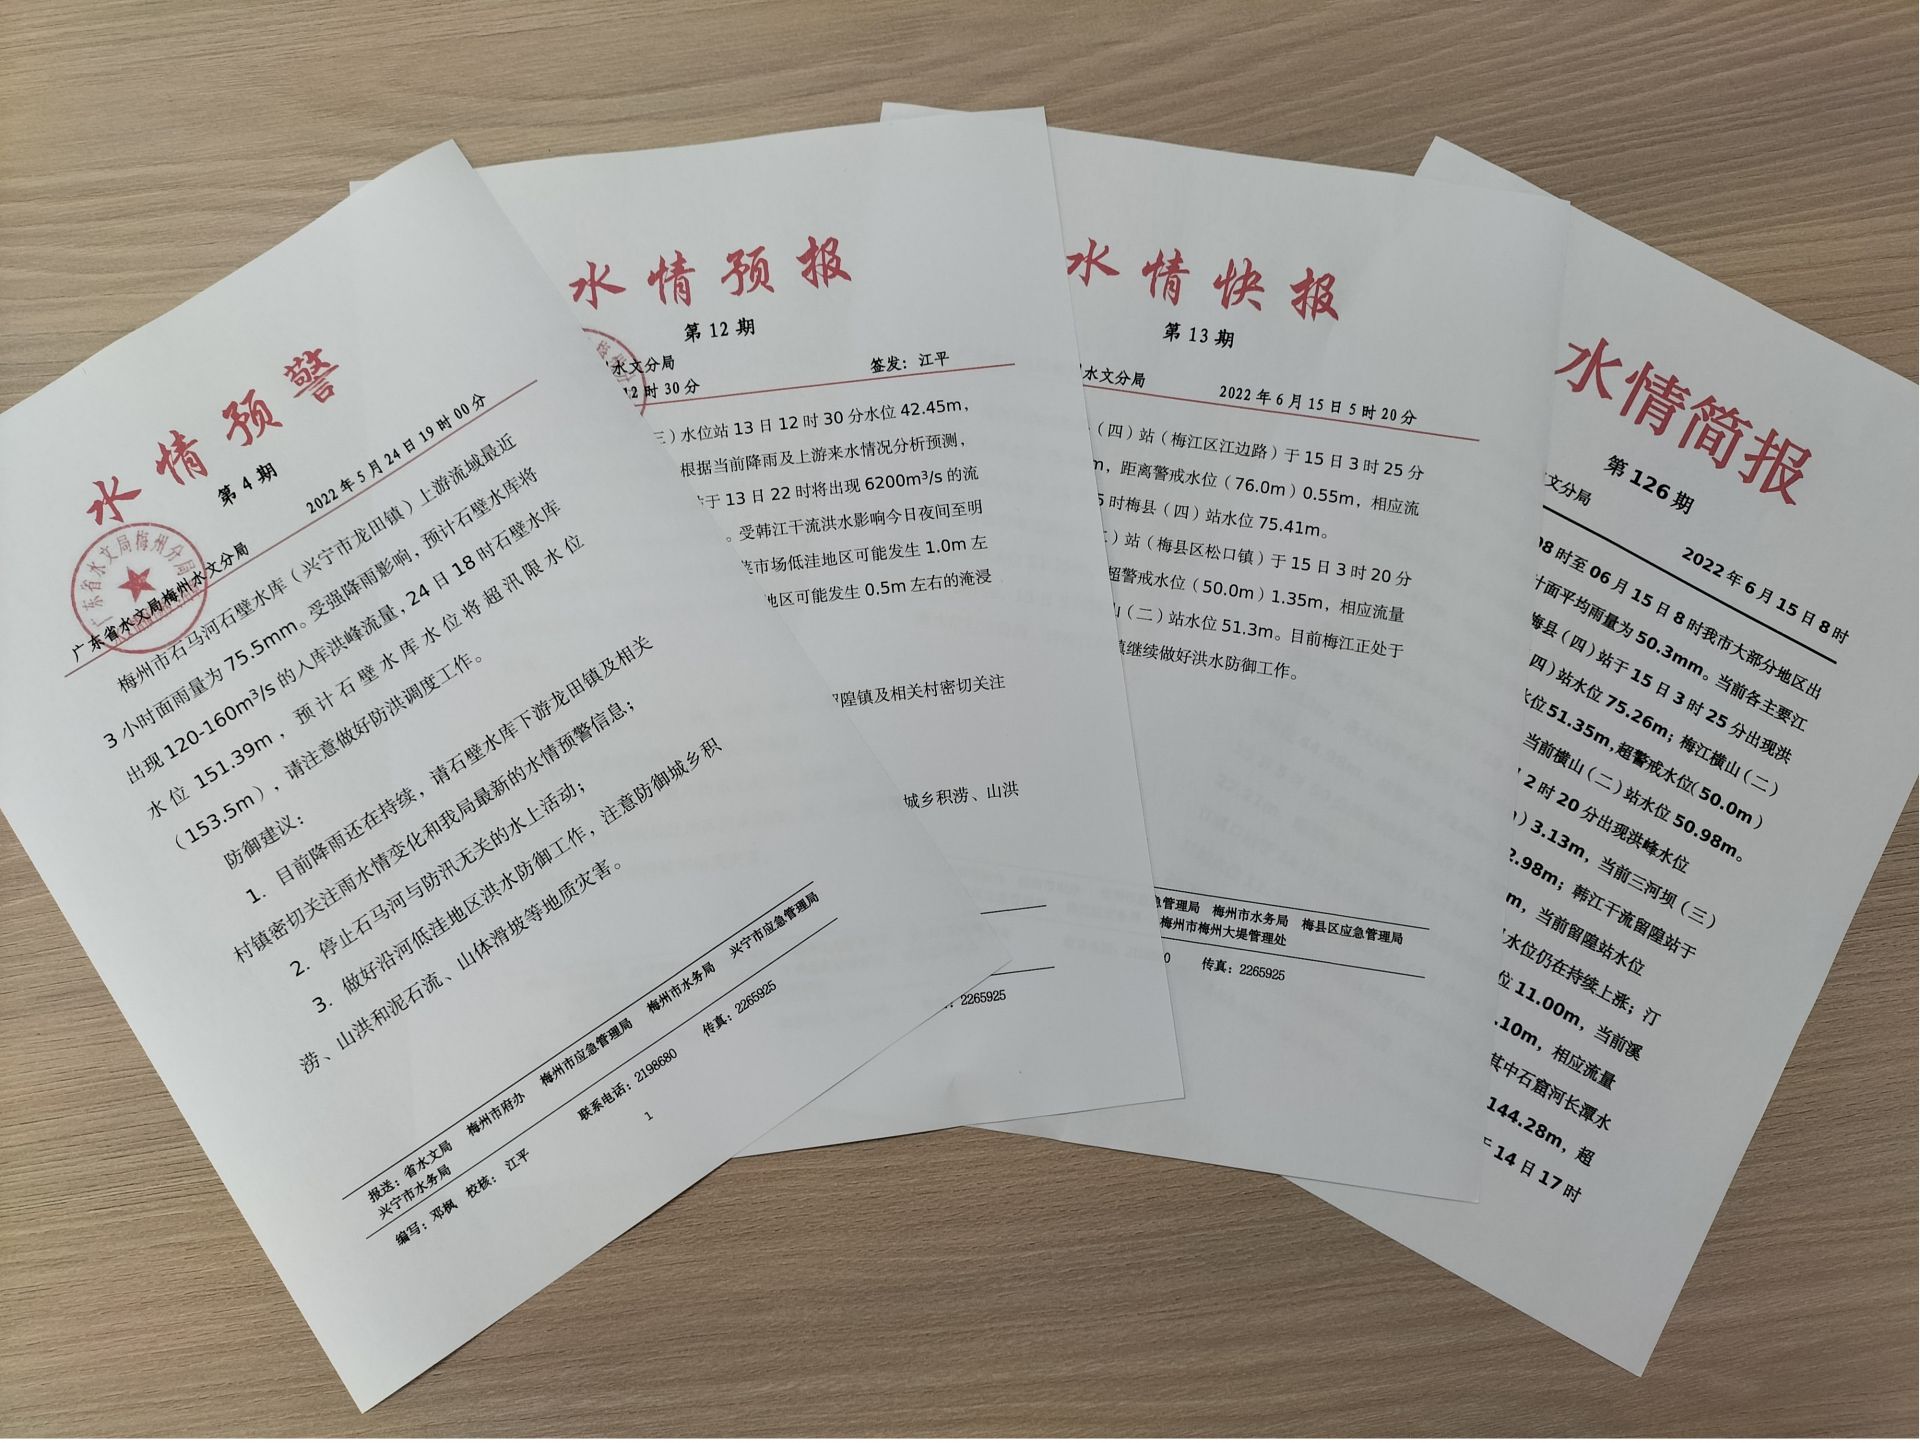 水情预警
第 4 期
广东省水文局梅州水文分局
2022 年 5 月 24 日 19 时 00 分
梅州市石马河石壁水库（兴宁市龙田镇）上游流域最近
3 小时面雨量为 75.5mm。受强降雨影响，预计石壁水库将
出现 120-160m³/s 的入库洪峰流量，24 日 18 时石壁水库
水位 151.39m，预计石壁水库水位将超汛限水位
（153.5m），请注意做好防洪调度工作。
防御建议：
1. 目前降雨还在持续，请石壁水库下游龙田镇及相关
村镇密切关注雨水情变化和我局最新的水情预警信息；
2. 停止石马河与防汛无关的水上活动；
3. 做好沿河低洼地区洪水防御工作，注意防御城乡积
涝、山洪和泥石流、山体滑坡等地质灾害。
报送：省水文局 梅州市府办 梅州市应急管理局 梅州市水务局 兴宁市应急管理局
兴宁市水务局
编写：邓枫 校核：江平 联系电话：2198680 传真：2265925
1
广东省水文局梅州分局
水情预报
第 12 期
水文分局
签发：江平
12 时 30 分
三）水位站 13 日 12 时 30 分水位 42.45m，
根据当前降雨及上游来水情况分析预测，
于 13 日 22 时将出现 6200m³/s 的流
。受韩江干流洪水影响今日夜间至明
菜市场低洼地区可能发生 1.0m 左
地区可能发生 0.5m 左右的淹浸
留隍镇及相关村密切关注
城乡积涝、山洪
：2265925
水情快报
第 13 期
水文分局
2022 年 6 月 15 日 5 时 20 分
（四）站（梅江区江边路）于 15 日 3 时 25 分
m，距离警戒水位（76.0m）0.55m，相应流
5 时梅县（四）站水位 75.41m。
）站（梅县区松口镇）于 15 日 3 时 20 分
超警戒水位（50.0m）1.35m，相应流量
（二）站水位 51.3m。目前梅江正处于
镇继续做好洪水防御工作。
急管理局 梅州市水务局 梅县区应急管理局
梅州市梅州大堤管理处
0 传真：2265925
水情简报
第 126 期
文分局
2022 年 6 月 15 日 8 时
08 时至 06 月 15 日 8 时我市大部分地区出
计面平均雨量为 50.3mm。当前各主要江
梅县（四）站于 15 日 3 时 25 分出现洪
四）站水位 75.26m；梅江横山（二）
水位 51.35m，超警戒水位（50.0m）
当前横山（二）站水位 50.98m。
2 时 20 分出现洪峰水位
）3.13m，当前三河坝（三）
2.98m；韩江干流留隍站于
m，当前留隍站水位
水位仍在持续上涨；汀
位 11.00m，当前溪
.10m，相应流量
其中石窟河长潭水
144.28m，超
14 日 17 时